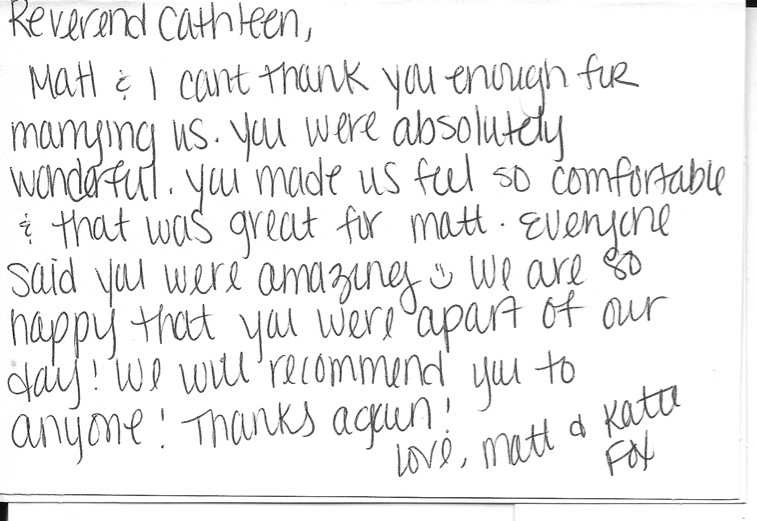 Reverend Cathleen,
Matt & I cant thank you enough for
marrying us. You were absolutely
wonderful. You made us feel so comfortable
& that was great for matt. Everyone
said you were amazing ☺ We are so
happy that you were apart of our
day! We will recommend you to
anyone! Thanks again!
Love, Matt & Katie
Fox